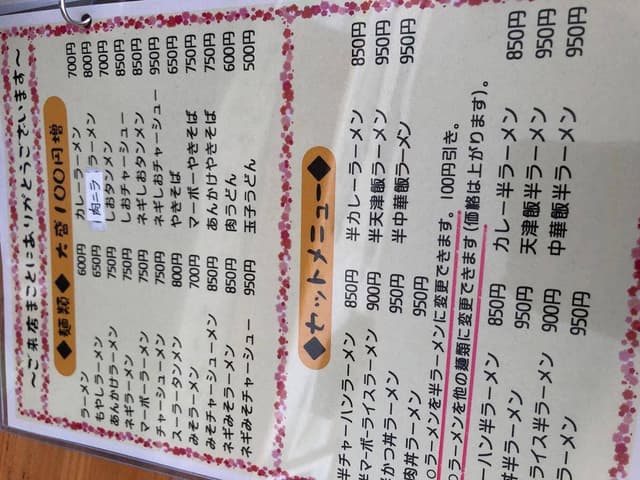 ~ご来店まことにありがとうございます~
◆麺類◆ 大盛100円増
ラーメン 600円 カレーラーメン 700円
もやしラーメン 650円 肉ニララーメン 800円
あんかけラーメン 750円 しおタンメン 700円
ネギラーメン 750円 しおチャーシュー 850円
マーボーラーメン 750円 ネギしおタンメン 850円
チャーシューメン 750円 ネギしおチャーシュー 950円
スーラータンメン 800円 やきそば 650円
みそラーメン 700円 マーボーやきそば 750円
みそチャーシューメン 850円 あんかけやきそば 750円
ネギみそラーメン 850円 肉うどん 600円
ネギみそチャーシュー 950円 玉子うどん 500円
◆セットメニュー◆
半チャーハンラーメン 850円 半カレーラーメン 850円
半マーボーライスラーメン 900円 半天津飯ラーメン 950円
かつ丼ラーメン 950円 半中華飯ラーメン 950円
肉丼ラーメン 950円
○ラーメンを半ラーメンに変更できます。 100円引き。
○ラーメンを他の麺類に変更できます(価格は上がります)。
ーハン半ラーメン 850円 カレー半ラーメン 850円
丼半ラーメン 950円 天津飯半ラーメン 950円
ライス半ラーメン 900円 中華飯半ラーメン 950円
ラーメン 950円